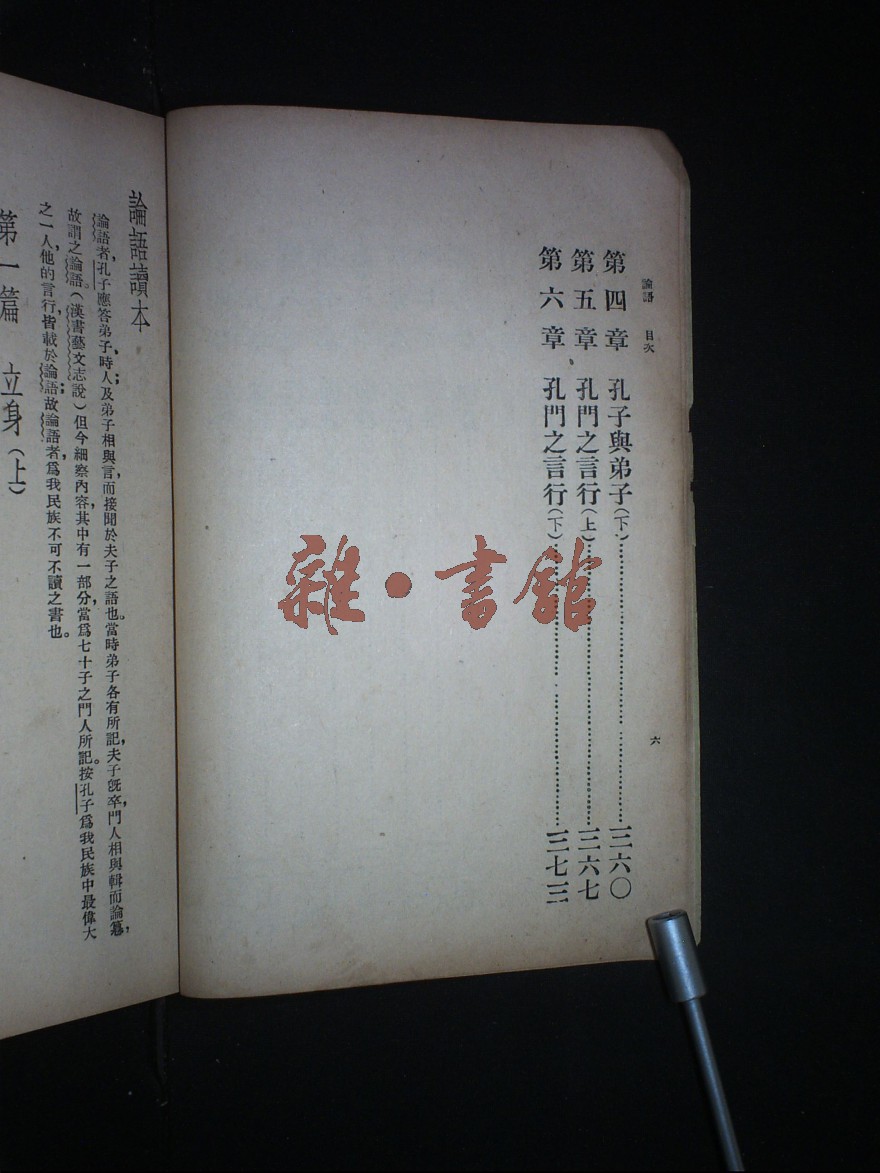 論語　目次
六
第四章　孔子與弟子(下)……三六〇
第五章　孔門之言行(上)……三六七
第六章　孔門之言行(下)……三七三
論語讀本
論語者，孔子應答弟子、時人及弟子相與言，而接聞於夫子之語也。當時弟子各有所記，夫子旣卒，門人相與輯而論篹，
故謂之論語。(漢書藝文志說)但今細察內容，其中有一部分，當爲七十子之門人所記。按孔子爲我民族中最偉大
之一人，他的言行，皆載於論語；故論語者，爲我民族不可不讀之書也。
第一篇　立身(上)
雜·書館